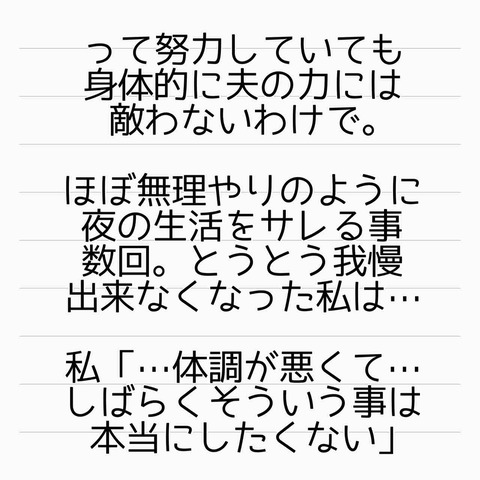 って努力していても
身体的に夫の力には
敵わないわけで。
ほぼ無理やりのように
夜の生活をサレる事
数回。とうとう我慢
出来なくなった私は…
私「…体調が悪くて…
しばらくそういう事は
本当にしたくない」